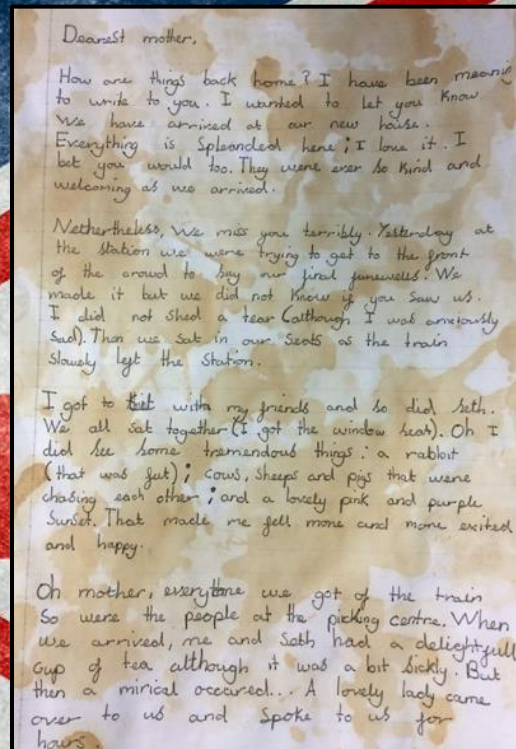 Dearest mother,
How are things back home? I have been meaning
to write to you. I wanted to let you know
we have arrived at our new house.
Everything is Spleanded here; I love it. I
bet you would too. They were ever so kind and
welcoming as we arrived.
Nethertheless, we miss you terribly. Yesterday at
the station we were trying to get to the front
of the crowd to say our final farewells. We
made it but we did not know if you saw us.
I did not shed a tear (although I was anxiously
sad). Then we sat in our seats as the train
slowely left the station.
I got to sit with my friends and so did Seth.
We all sat together (I got the window seat). Oh I
did see some tremendous things: a rabbit
(that was fat); cows, sheeps and pigs that were
chasing each other; and a lovely pink and purple
sunset. That made me fell more and more exited
and happy.
Oh mother, everytime we got of the train
So were the people at the picking centre. When
we arrived, me and Seth had a delightfull
cup of tea although it was a bit sickly. But
then a mirical occured... A lovely lady came
over to us and spoke to us for
hours.